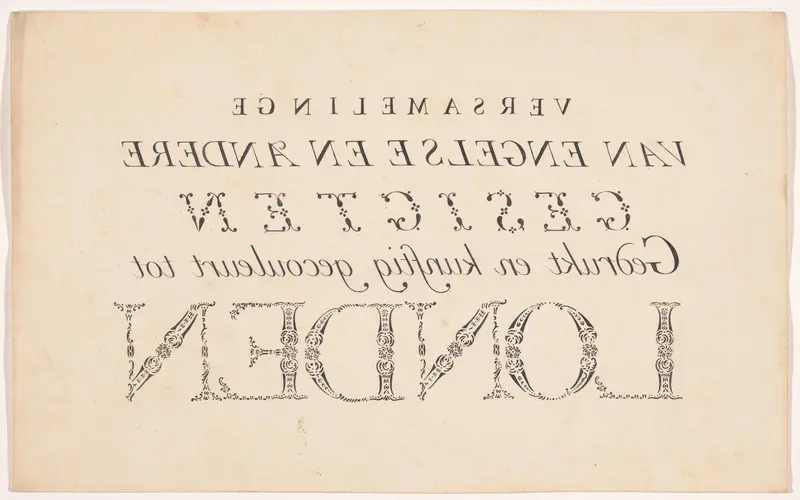 VERSAMELINGE
VAN ENGELSE EN ANDERE
GESIGTEN
Gedrukt en kunſtig gecouleurt tot
LONDEN